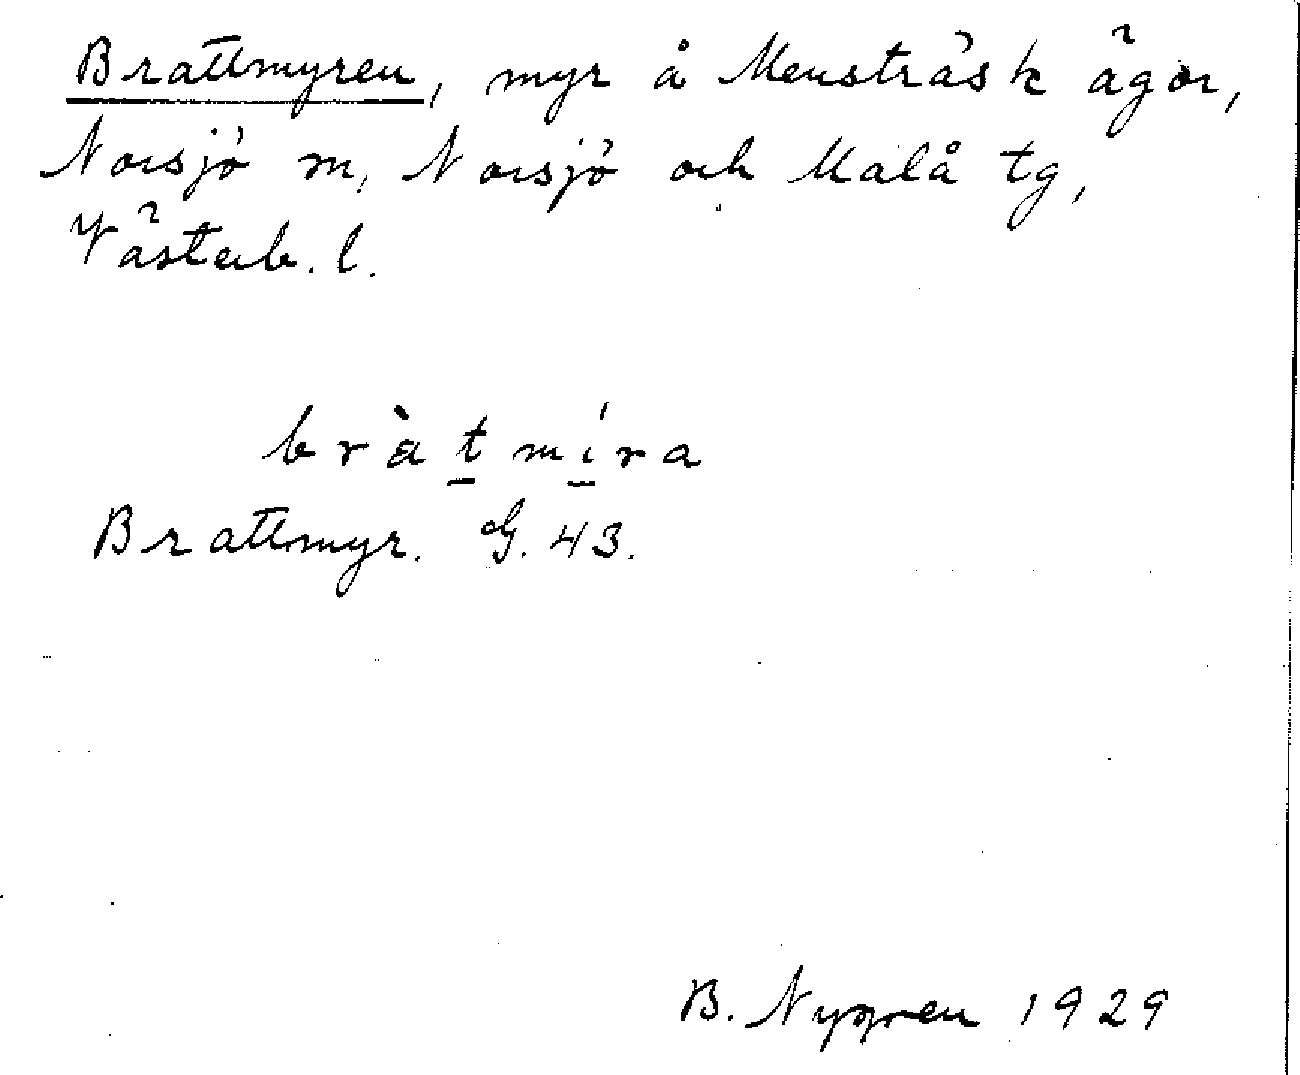 Brattmyren, myr å Mensträsk ägor,
Norsjö sn, Norsjö och Malå tg,
Västerb. l.
bràtmíra
Brattmyr. G. 43.
B. Nygren 1929